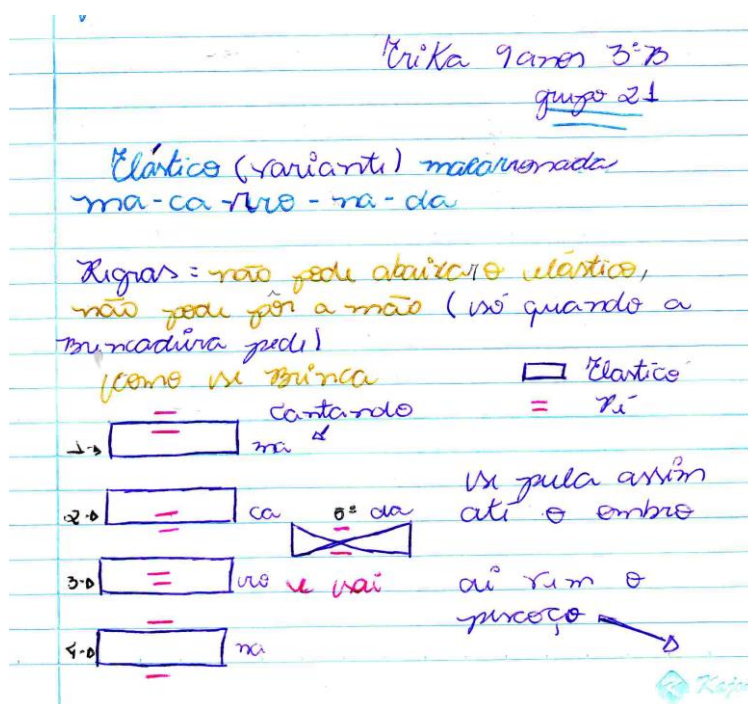 Erika 9 anos 3ºB
grupo 21
Elástico (variante) macarronada
ma-ca-rro-na-da
Regras: não pode abaixar o elástico,
não pode pôr a mão (só quando a
Brincadeira pede)
como se Brinca
Elastico
= Pé
cantando
1→ ma
2→ ca
5º da
3→ rro e vai
4→ na
se pula assim
até o ombro
aí vem o
pescoço